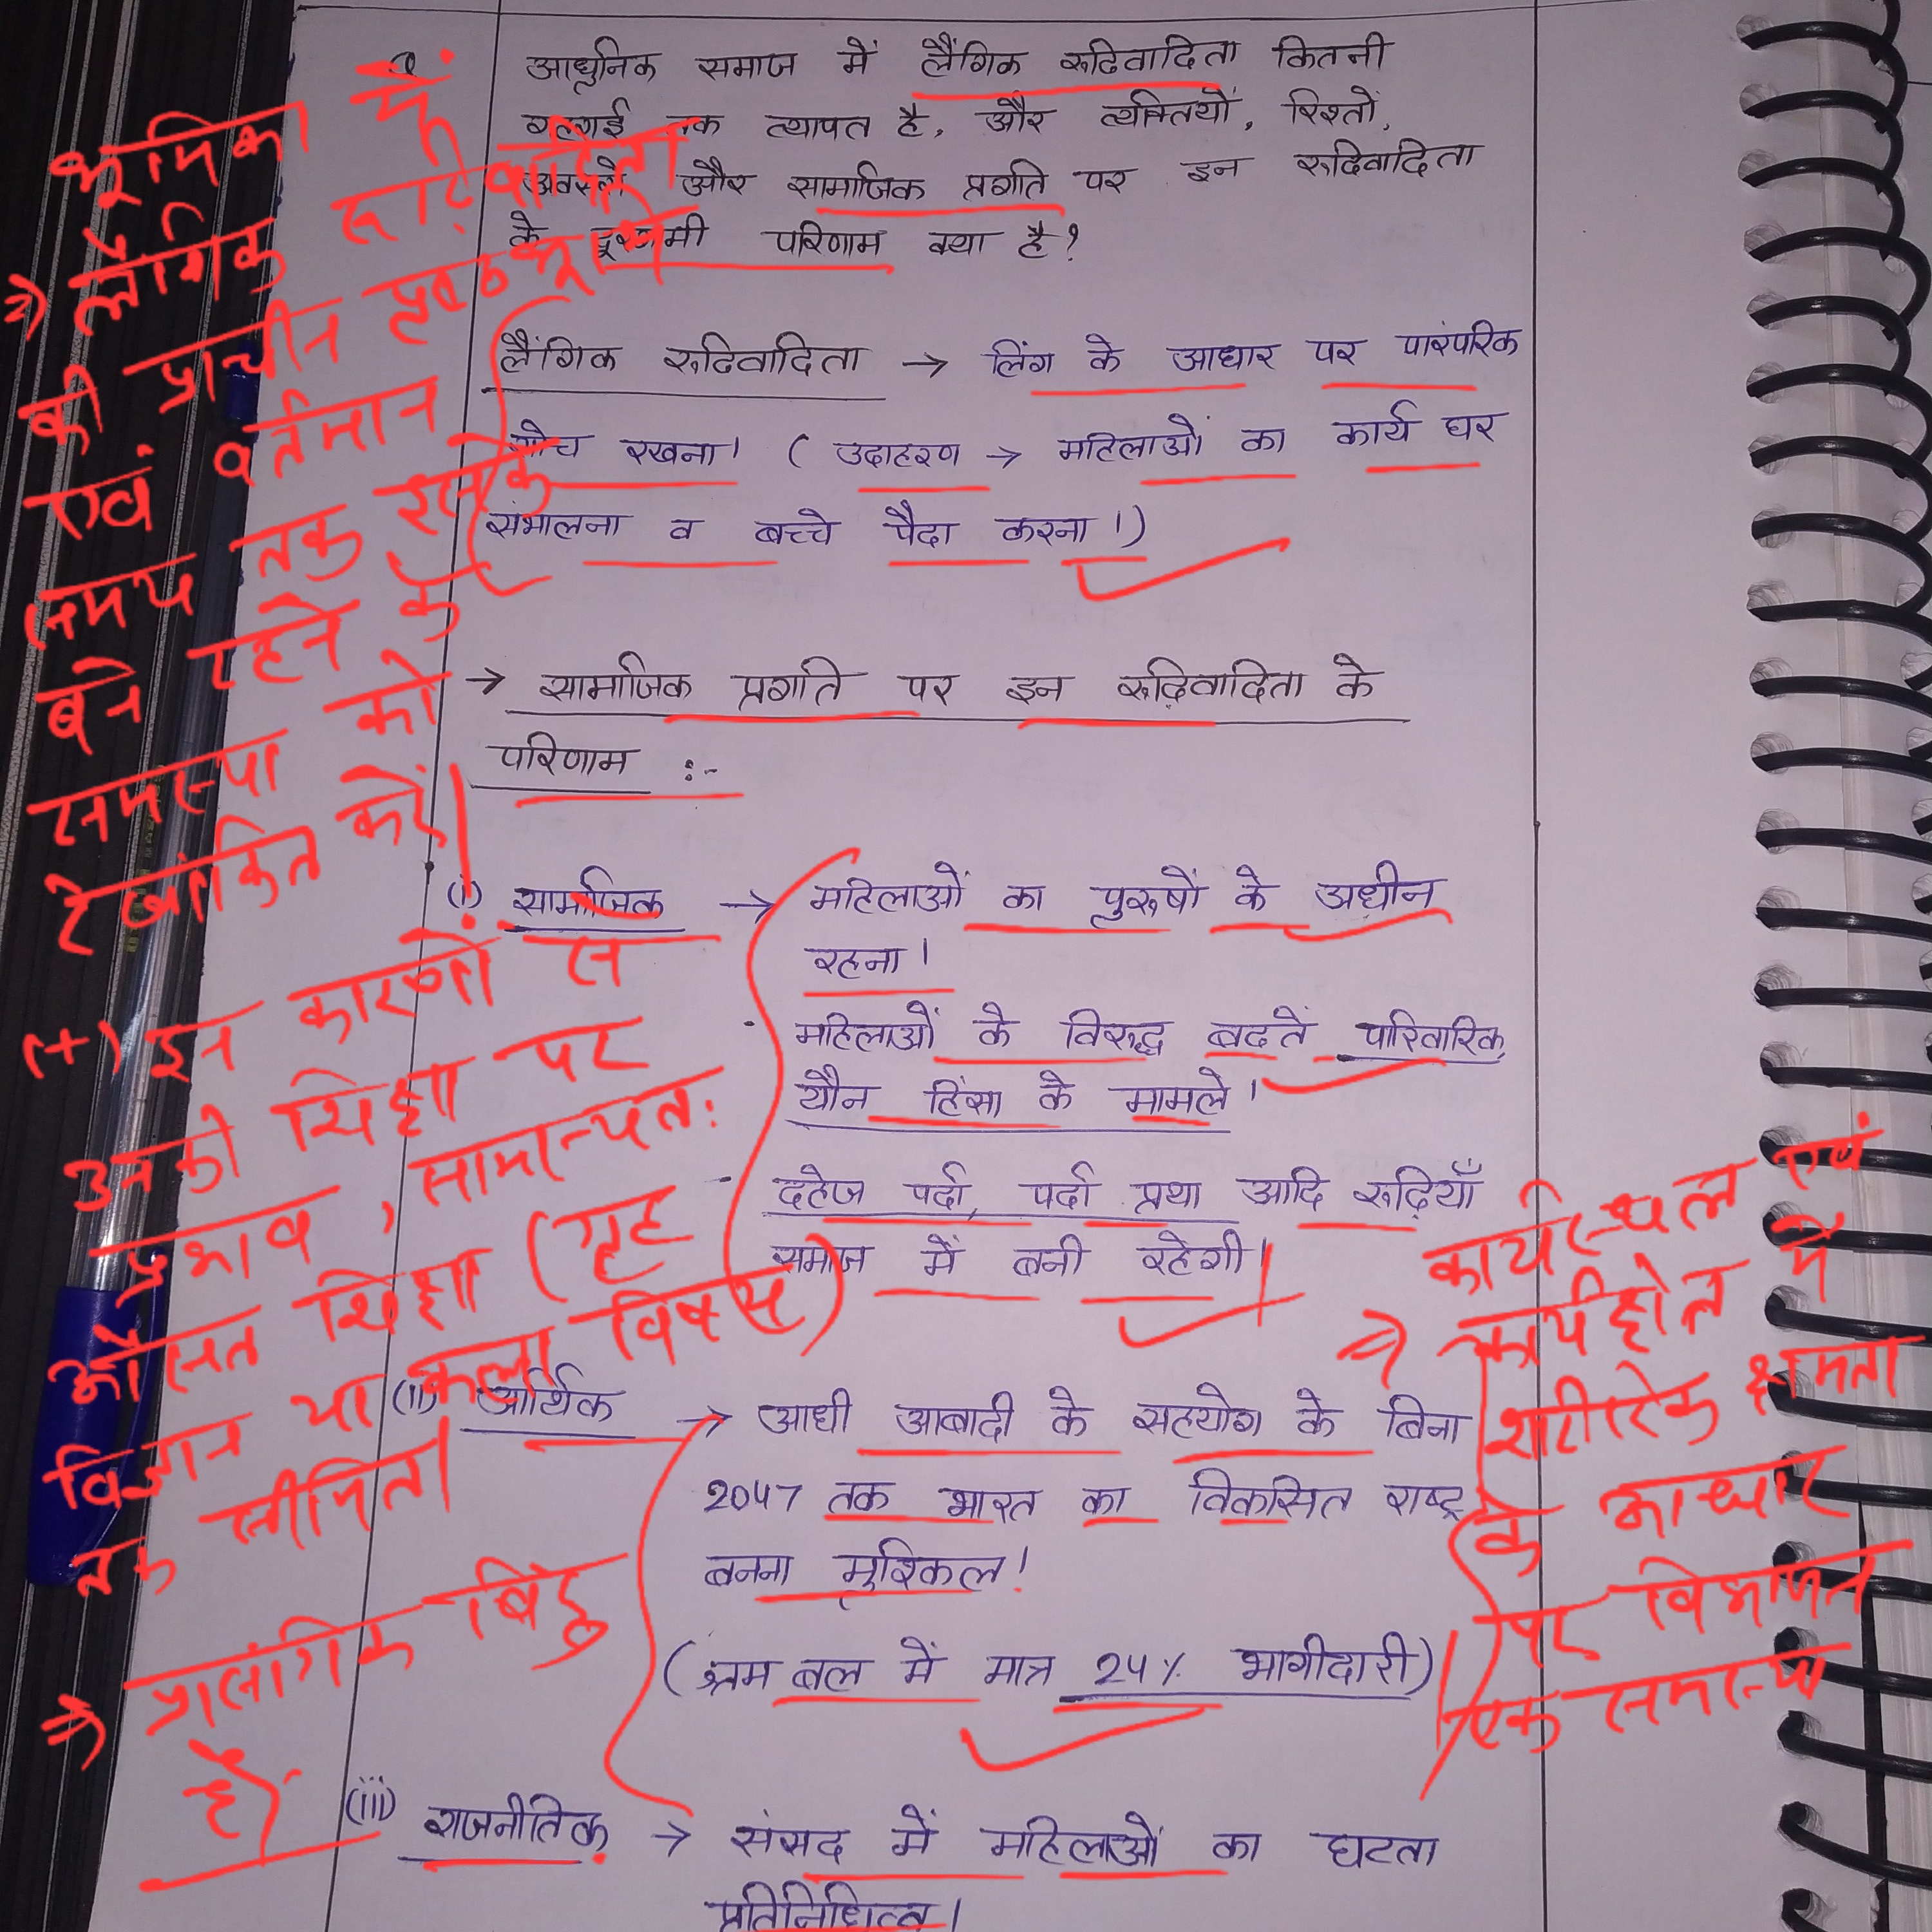 आधुनिक समाज में लैंगिक रूढिवादिता कितनी
गहराई तक व्याप्त है, और व्यक्तियों, रिश्तों,
और सामाजिक प्रगति पर इन रूढिवादिता
के दूरगामी परिणाम क्या है?
लैंगिक रूढिवादिता → लिंग के आधार पर पारंपरिक
सोच रखना। ( उदाहरण → महिलाओं का कार्य घर
संभालना व बच्चे पैदा करना।)
→ सामाजिक प्रगति पर इन रूढ़िवादिता के
परिणाम :-
(i) सामाजिक → महिलाओं का पुरुषों के अधीन
रहना।
· महिलाओं के विरुद्ध बढतें पारिवारिक,
यौन हिंसा के मामले।
- दहेज पर्दा, पर्दा प्रथा आदि रूढ़ियाँ
समाज में बनी रहेगी।
(ii) आर्थिक → आधी आबादी के सहयोग के बिना
2047 तक भारत का विकसित राष्ट्र
बनना मुश्किल!
(श्रम बल में मात्र 24% भागीदारी)
(iii) राजनीतिक → संसद में महिलाओं का घटता
प्रतिनिधित्व।
भूमिका में
⇒ लैंगिक रूढ़िवादिता
की प्राचीन पृष्ठभूमि
एवं वर्तमान
समय तक इसके
बने रहने के
समस्या को
रेखांकित करें।
(+) इन कारणों से
उनकी शिक्षा पर
प्रभाव , सामान्यत:
औसत शिक्षा (गृह
विज्ञान या कला विषय)
तक सीमित।
⇒ प्रासंगिक बिंदु
है।
⇒ कार्यस्थल एवं
कार्यक्षेत्र में
शारीरिक क्षमता
के आधार
पर विभाजन
एक समस्या